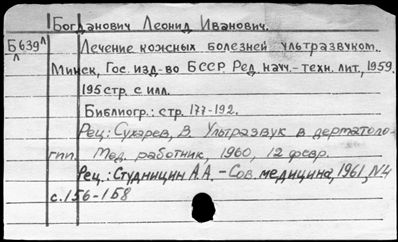 Богданович Леонид Иванович.
Б639 Л
Л
Лечение кожных болезней ультразвуком.
Минск, Гос. изд-во БССР. Ред. науч.-техн. лит., 1959.
195 стр. с илл.
Библиогр.: стр. 177-192.
Рец.: Сухарев, В. Ультразвук в дерматоло-
гии. Мед. работник, 1960, 12 февр.
Рец.: Студницин А.А. - Сов. медицина, 1961, N4
с. 156-158